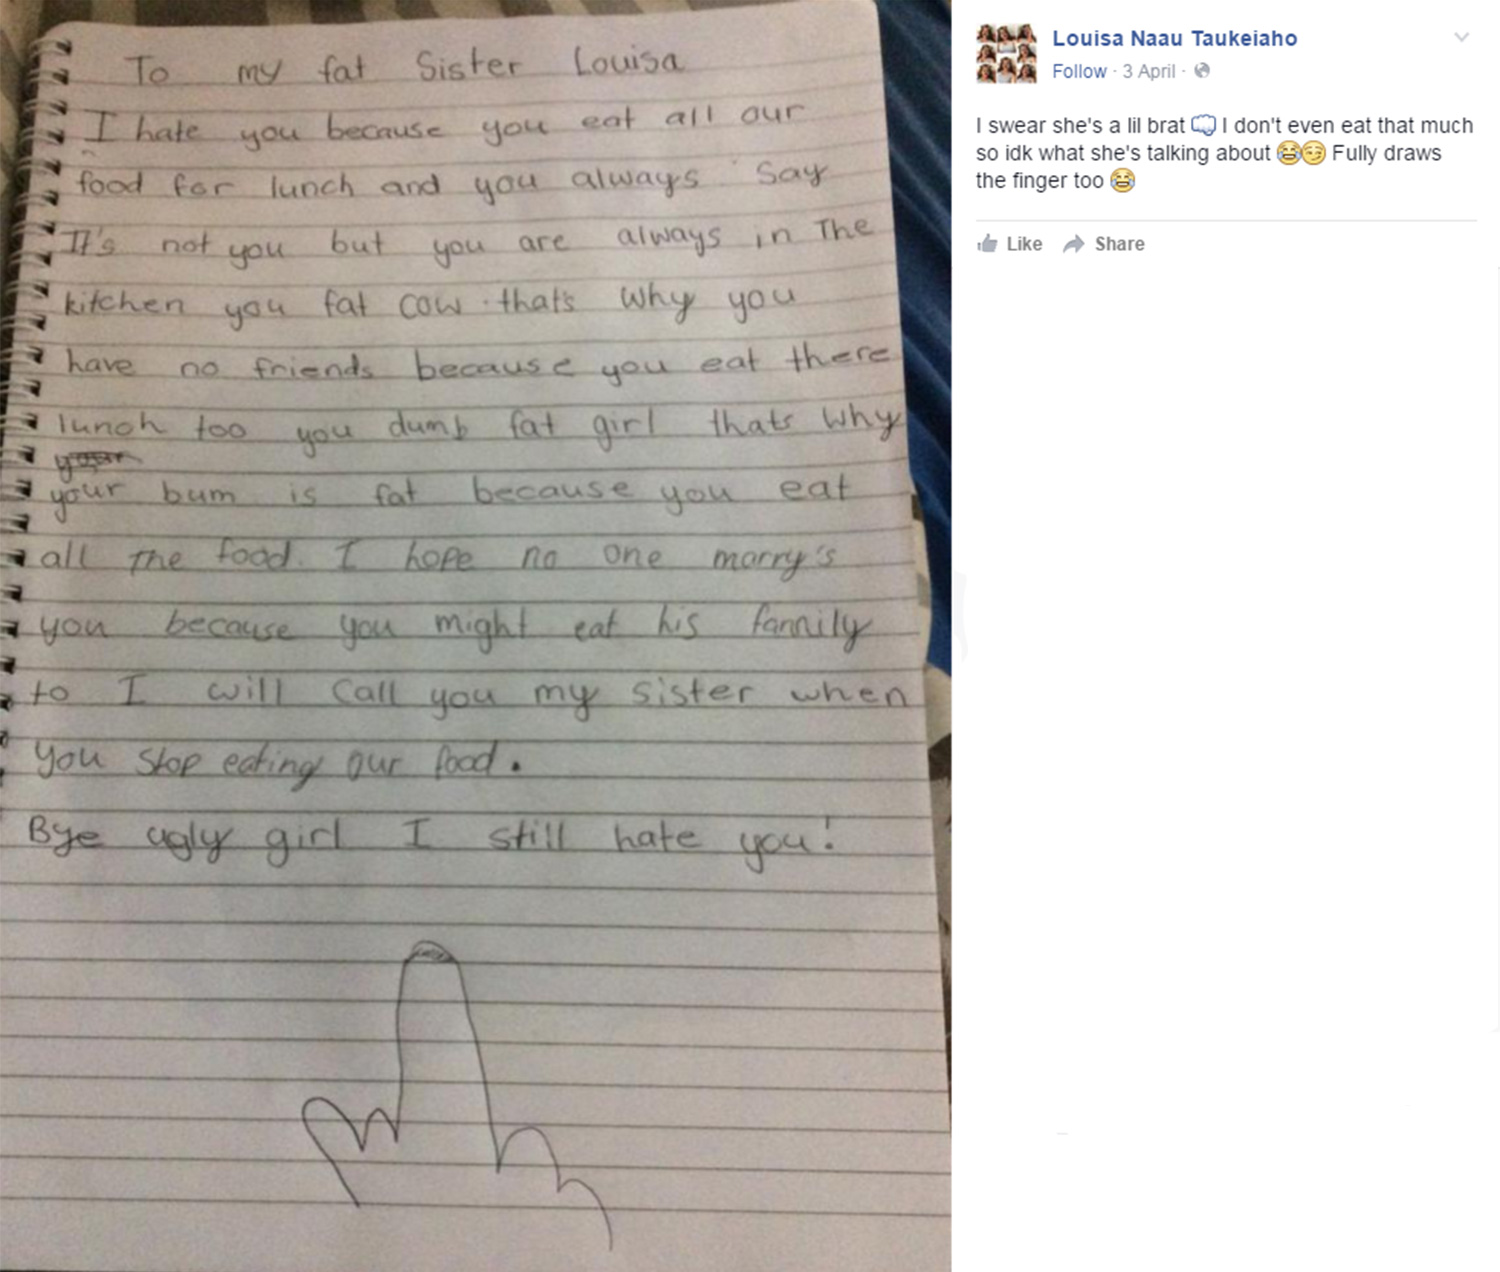 To my fat Sister Louisa
I hate you because you eat all our
food for lunch and you always say
It's not you but you are always in The
kitchen you fat cow thats why you
have no friends because you eat there
lunch too you dumb fat girl thats why
your bum is fat because you eat
all The food. I hope no one marry's
you because you might eat his family
to I will call you my sister when
you stop eating our food.
Bye ugly girl I still hate you!
Louisa Naau Taukeiaho
Follow · 3 April ·
I swear she's a lil brat 💭 I don't even eat that much
so idk what she's talking about 😂😏 Fully draws
the finger too 😂
Like Share